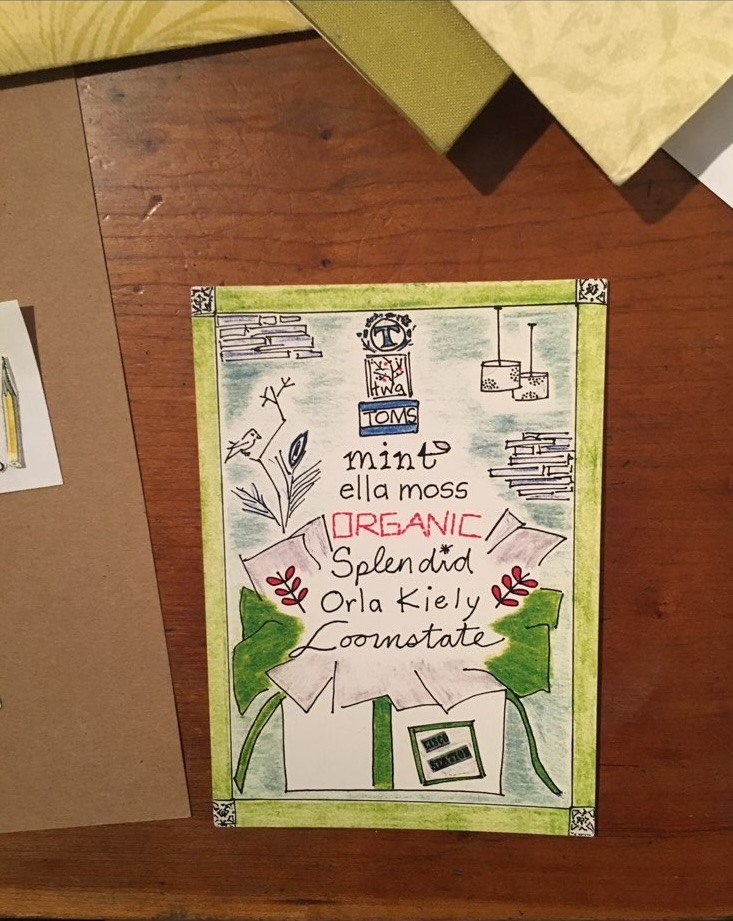 T
twa
TOMS
mint
ella moss
ORGANIC
Splendid
Orla Kiely
Loomstate
CISCO
STATION